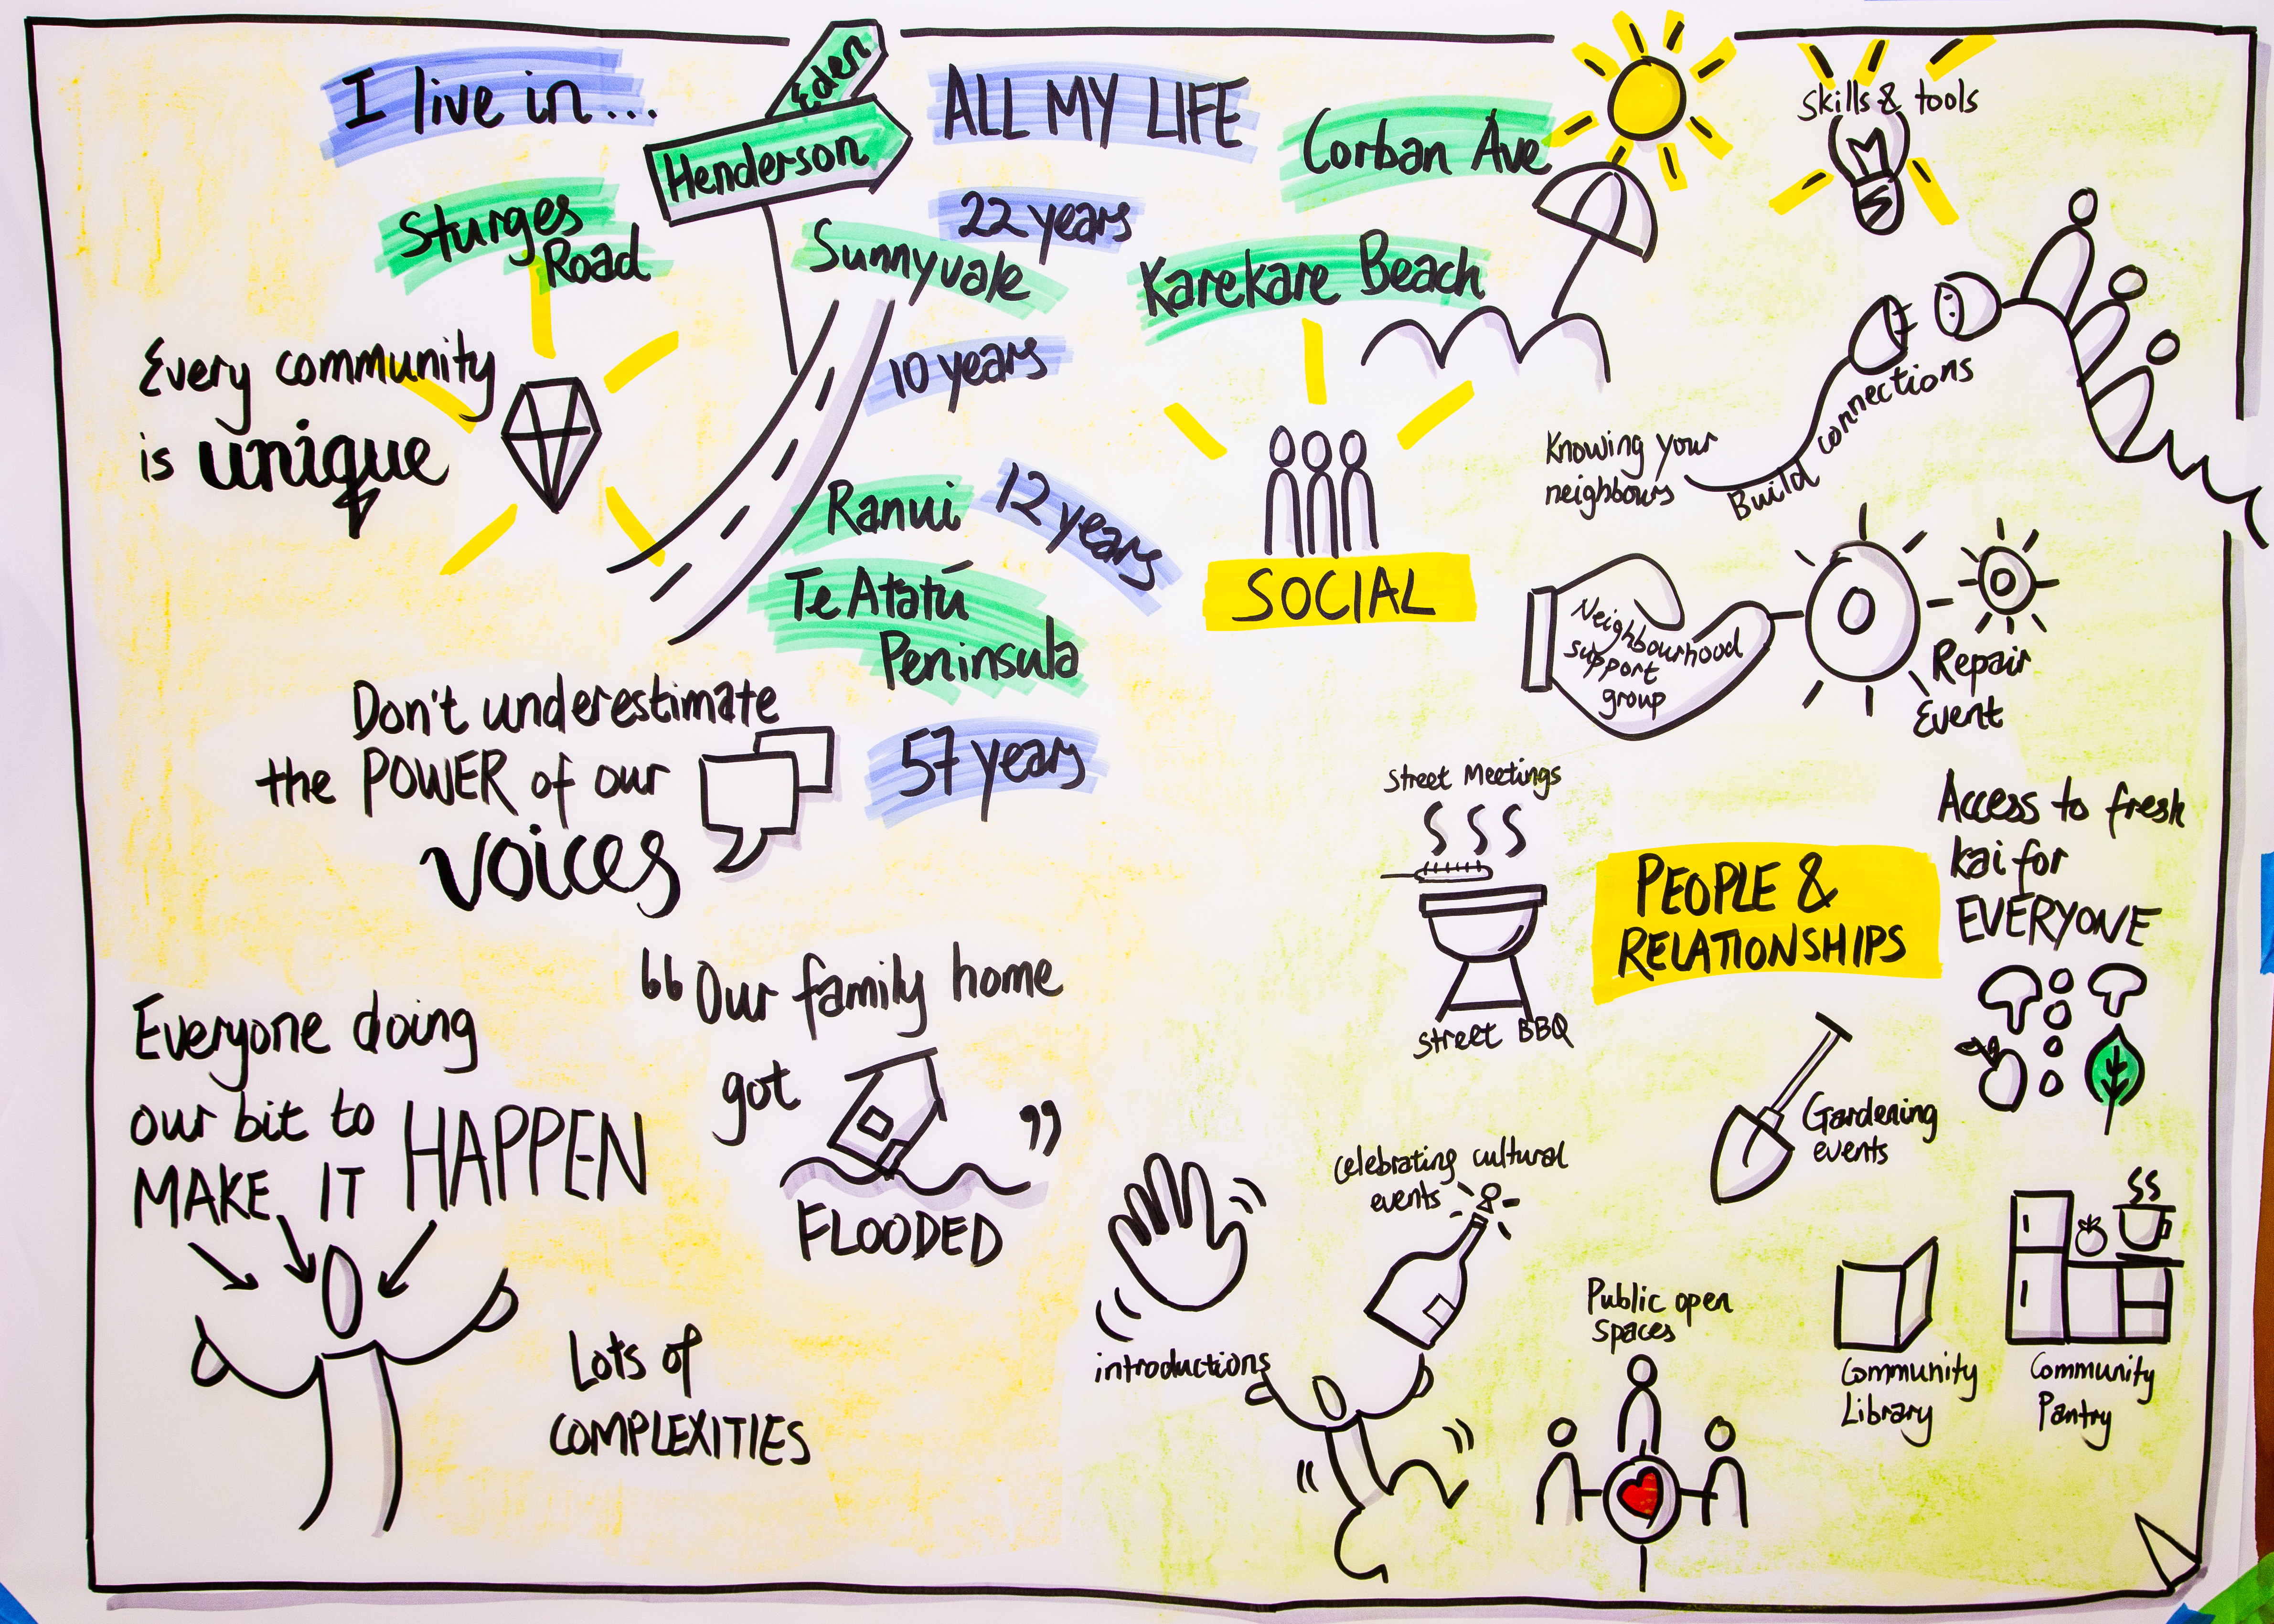 I live in...
Eden
Henderson
ALL MY LIFE
Corban Ave
Skills & tools
Sturges
Road
22 years
Sunnyvale
Karekare Beach
10 years
Every community
is unique
Ranui
12 years
Te Atatū
Peninsula
57 years
Don't underestimate
the POWER of our
voices
"Our family home
got
"
FLOODED
Everyone doing
our bit to
MAKE IT HAPPEN
Lots of
COMPLEXITIES
SOCIAL
Knowing your
neighbours
Build connections
Neighbourhood
support
group
Repair
Event
Street Meetings
Street BBQ
PEOPLE &
RELATIONSHIPS
Access to fresh
kai for
EVERYONE
Gardening
events
Celebrating cultural
events
introductions
Public open
spaces
Community
Library
Community
Pantry